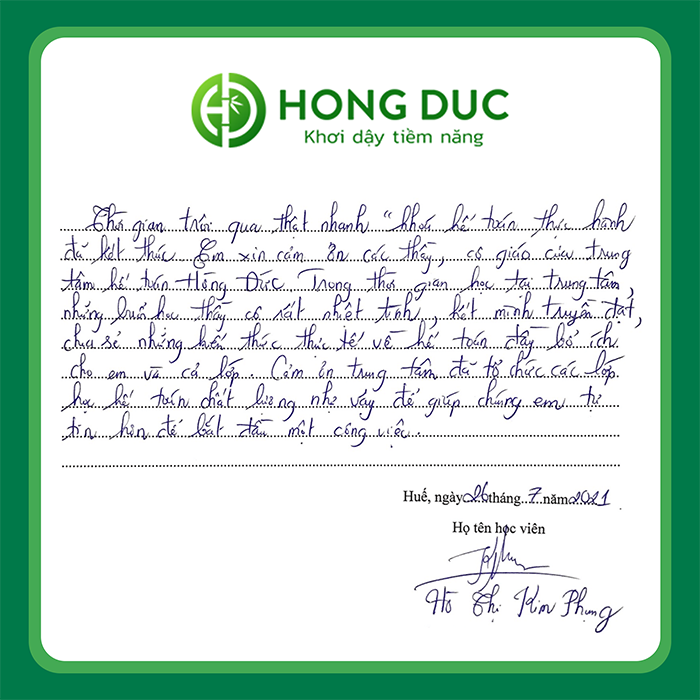 HONG DUC
Khơi dậy tiềm năng
Thời gian trôi qua thật nhanh "khoá kế toán thực hành
đã kết thúc. Em xin cảm ơn các thầy, cô giáo của trung
tâm kế toán Hồng Đức. Trong thời gian học tại trung tâm,
những buổi học thầy cô rất nhiệt tình, hết mình truyền đạt,
chia sẻ những kiến thức thực tế về kế toán đầy bổ ích
cho em và cả lớp. Cảm ơn trung tâm đã tổ chức các lớp
học kế toán chất lượng như vậy để giúp chúng em tự
tin hơn để bắt đầu một công việc.
Huế, ngày 26 tháng 7 năm 2021
Họ tên học viên
Hồ Thị Kim Phụng